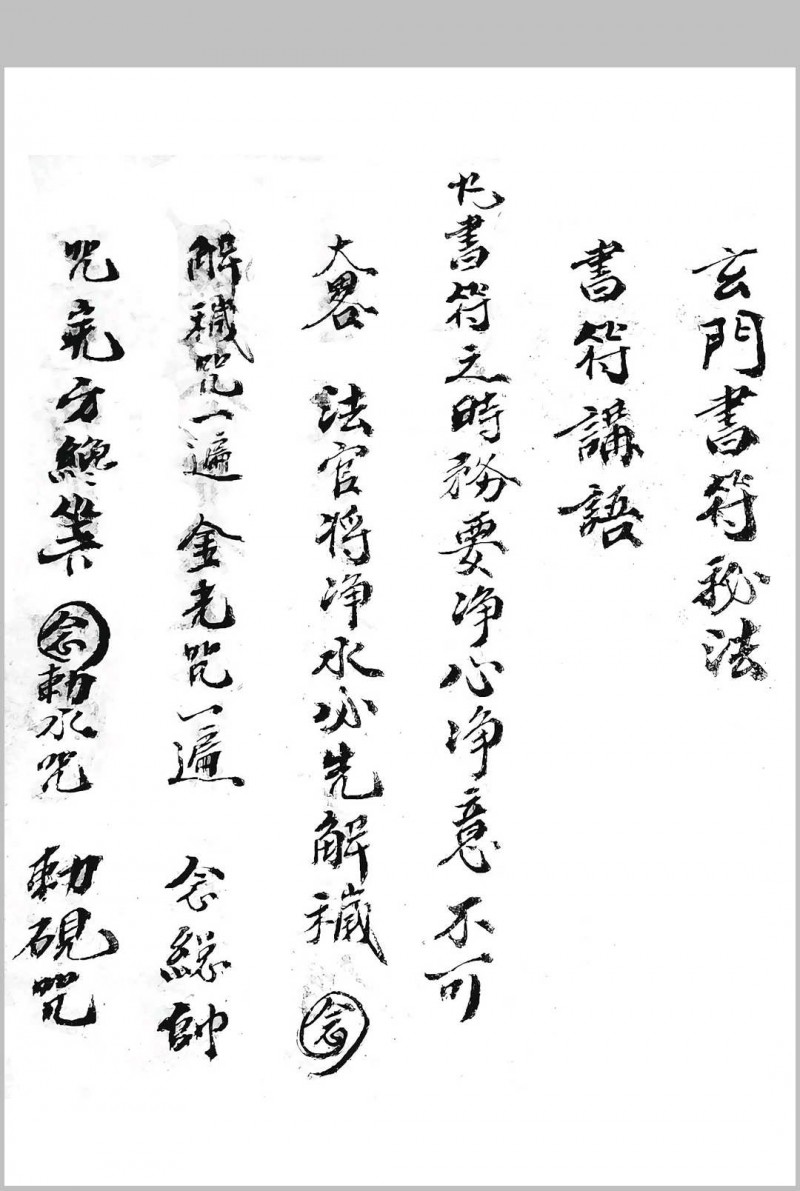 玄門書符秘法
書符講語
凡書符之時務要净心净意不可
大畧 法官将净水必先解穢 念
解穢咒一遍 金光咒一遍 念総帥
咒完方纔 念 勅水咒 勅硯咒